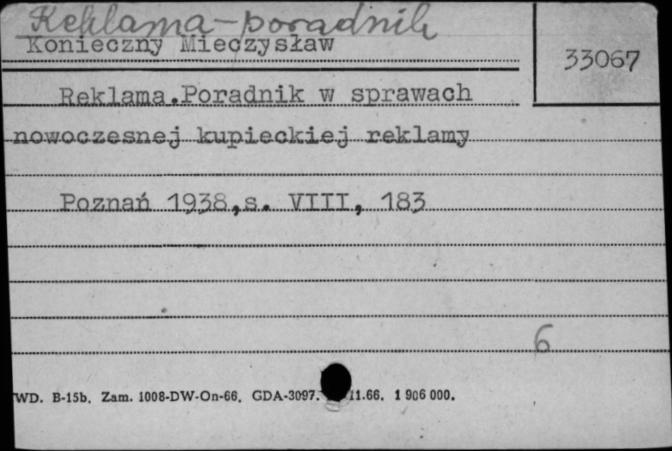 Reklama-poradnik
Konieczny Mieczysław
33067
Reklama.Poradnik w sprawach
nowoczesnej kupieckiej reklamy
Poznań 1938,s. VIII, 183
6
WD. B-15b. Zam. 1008-DW-On-66. GDA-3097. 11.66. 1 906 000.